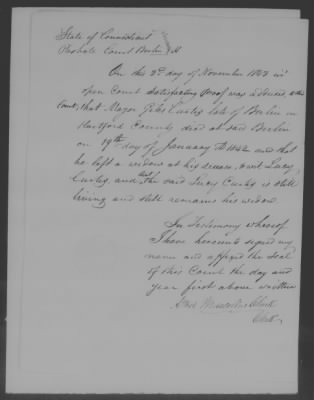 State of Connecticut
Probate Court Berlin ss.
On this 2d day of November 1852 in
open Court satisfactory proof was adduced, to this
Court, that Major Giles Curtis late of Berlin in
Hartford County died at said Berlin
on 19th day of January AD 1842 and that
he left a widow at his decease to wit Lucy
Curtis, and that the said Lucy Curtis is still
living and still remains his widow.
In Testimony whereof
I have hereunto signed my
name and affixed the seal
of this Court the day and
year first above written
Clark
Clerk